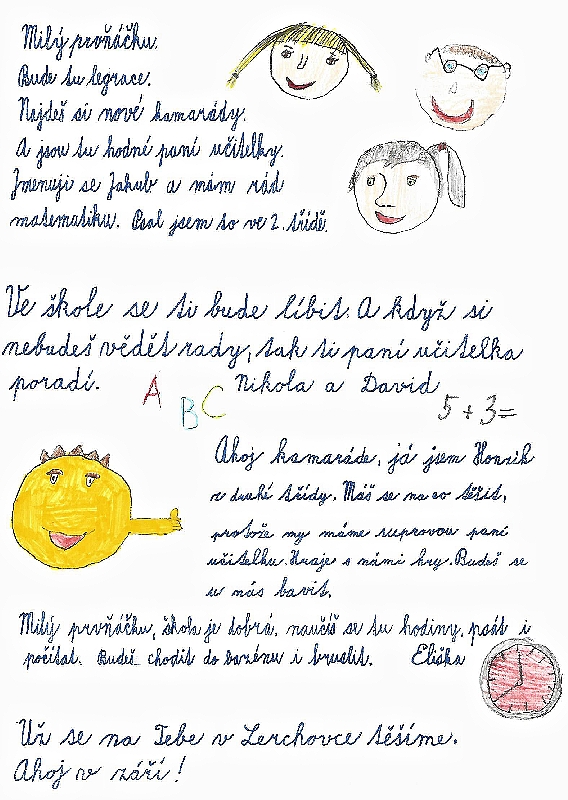 Milý prvňáčku.
Bude tu legrace.
Najdeš si nové kamarády.
A jsou tu hodné paní učitelky.
Jmenuji se Jakub a mám rád
matematiku. Psal jsem to ve 2. třídě.
Ve škole se ti bude líbit. A když si
nebudeš vědět rady, tak ti paní učitelka
poradí. A B C Nikola a David
5+3=
Ahoj kamaráde, já jsem Honzík
z druhé třídy. Máš se na co těšit,
protože my máme suprovou paní
učitelku. Hraje s námi hry. Budeš se
u nás bavit.
Milý prvňáčku, škola je dobrá, naučíš se tu hodiny, psát i
počítat. Budeš chodit do bazénu i bruslit. Eliška
Už se na Tebe v Lerchovce těšíme.
Ahoj v září!